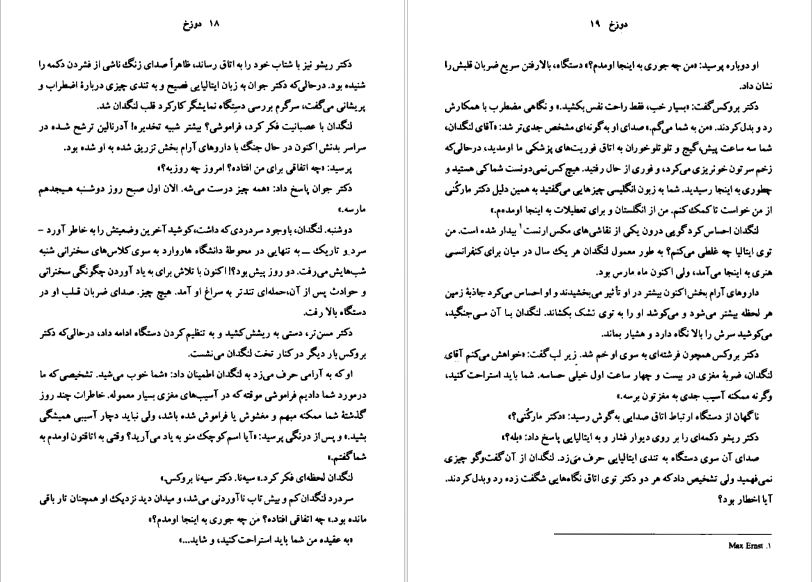 ۱۸ دوزخ
دکتر ریشو نیز با شتاب خود را به اتاق رساند، ظاهراً صدای زنگ ناشی از فشردن دکمه را
شنیده بود. درحالی‌که دکتر جوان به زبان ایتالیایی فصیح و به تندی چیزی دربارهٔ اضطراب و
پریشانی می‌گفت، سرگرم بررسی دستگاه نمایشگر کارکرد قلب لنگدان شد.
لنگدان با عصبانیت فکر کرد، فراموشی؟ بیشتر شبیه تخدیره! آدرنالین ترشح شده در
سراسر بدنش اکنون در حال جنگ با داروهای آرام بخش تزریق شده به او شده بود.
پرسید: «چه اتفاقی برای من افتاده؟ امروز چه روزیه؟»
دکتر جوان پاسخ داد: «همه چیز درست می‌شه. الان اول صبح روز دوشنبه هیجدهم
مارسه.»
دوشنبه. لنگدان، باوجود سردردی که داشت، کوشید آخرین وضعیتش را به خاطر آورد –
سرد و تاریک ـــ به تنهایی در محوطهٔ دانشگاه هاروارد به سوی کلاس‌های سخنرانی شنبه
شب‌هایش می‌رفت. دو روز پیش بود؟! اکنون با تلاش برای به یاد آوردن چگونگی سخنرانی
و حوادث پس از آن، حمله‌ای تندتر به سراغ او آمد. هیچ چیز. صدای ضربان قلب او در
دستگاه بالا رفت.
دکتر مسن‌تر، دستی به ریشش کشید و به تنظیم کردن دستگاه ادامه داد، درحالی‌که دکتر
بروکس بار دیگر در کنار تخت لنگدان می‌نشست.
او که به آرامی حرف می‌زد به لنگدان اطمینان داد: «شما خوب می‌شید. تشخیصی که ما
درمورد شما دادیم فراموشی موقته که در آسیب‌های مغزی بسیار معموله. خاطرات چند روز
گذشتهٔ شما ممکنه مبهم و مغشوش یا فراموش شده باشد، ولی نباید دچار آسیبی همیشگی
بشید.» و پس از درنگی پرسید: «آیا اسم کوچک منو به یاد می‌آرید؟ وقتی به اتاقتون اومدم به
شما گفتم.»
لنگدان لحظه‌ای فکر کرد.» سیه‌نا. دکتر سیه‌نا بروکس.»
سردرد لنگدان کم و بیش تاب ناآوردنی می‌شد، و میدان دید نزدیک او همچنان تار باقی
مانده بود.» چه اتفاقی افتاده؟ من چه جوری به اینجا اومدم؟»
«به عقیده من شما باید استراحت کنید، و شاید...»
دوزخ ۱۹
او دوباره پرسید: «من چه جوری به اینجا اومدم؟» دستگاه، بالارفتن سریع ضربان قلبش را
نشان داد.
دکتر بروکس گفت: «بسیار خب، فقط راحت نفس بکشید.» و نگاهی مضطرب با همکارش
رد و بدل کردند. «من به شما می‌گم.» صدای او به‌گونه‌ای مشخص جدی‌تر شد: «آقای لنگدان،
شما سه ساعت پیش، گیج و تلو تلو خوران به اتاق فوریت‌های پزشکی ما اومدید، درحالی‌که
زخم سرتون خونریزی می‌کرد، و فوری از حال رفتید. هیچ کس نمی‌دونست شما کی هستید و
چطوری به اینجا رسیدید. شما به زبون انگلیسی چیزهایی می‌گفتید به همین دلیل دکتر مارکُنی
از من خواست تا کمک کنم. من از انگلستان و برای تعطیلات به اینجا اومده‌م.»
لنگدان احساس کرد گویی درون یکی از نقاشی‌های مکس ارنست۱ بیدار شده است. من
توی ایتالیا چه غلطی می‌کنم؟ به طور معمول لنگدان هر یک سال در میان برای کنفرانسی
هنری به اینجا می‌آمد، ولی اکنون ماه مارس بود.
داروهای آرام بخش اکنون بیشتر در او تأثیر می‌بخشیدند و او احساس می‌کرد جاذبهٔ زمین
هر لحظه بیشتر می‌شود و می‌کوشد او را به توی تشک بکشاند. لنگدان بـا آن مـی‌جنگید،
می‌کوشید سرش را بالا نگاه دارد و هشیار بماند.
دکتر بروکس همچون فرشته‌ای به سوی او خم شد. زیر لب گفت: «خواهش می‌کنم آقای
لنگدان، ضربهٔ مغزی در بیست و چهار ساعت اول خیلی حساسه. شما باید استراحت کنید،
وگرنه ممکنه آسیب جدی به مغزتون برسه.»
ناگهان از دستگاه ارتباط اتاق صدایی به‌گوش رسید: «دکتر مارکُنی؟»
دکتر ریشو دکمه‌ای را بر روی دیوار فشار و به ایتالیایی پاسخ داد: «بله؟»
صدای آن سوی دستگاه به تندی ایتالیایی حرف می‌زد. لنگدان از آن گفت‌وگو چیزی
نمی‌فهمید ولی تشخیص داد که هر دو دکتر توی اتاق نگاه‌هایی شگفت زده رد و بدل کردند.
آیا اخطار بود؟
۱. Max Ernst